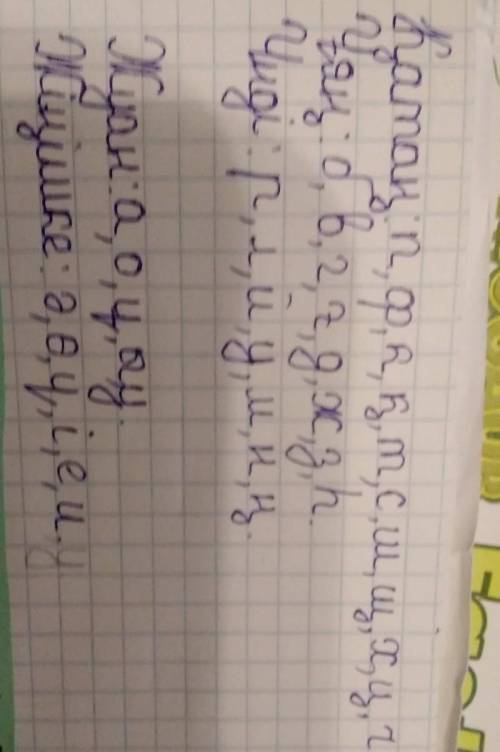 Қатаң: п, ф, к, қ, т, с, ш, щ, х, ц, ч
Ұяң: б, в, г, ғ, д, ж, з, һ.
Үнді: р, л, и, у, м, н, ң.
Жуан: а, о, ұ, ы, у.
Жіңішке: ә, ө, ү, і, е, и. у